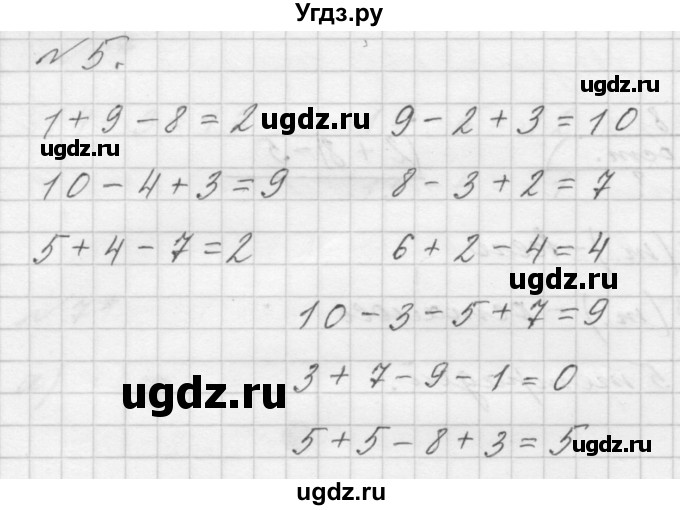 Угдз.ру
№ 5.
ugdz.ru
1 + 9 - 8 = 2 ugdz.ru 9 - 2 + 3 = 10
ugdz.ru
10 - 4 + 3 = 9 8 - 3 + 2 = 7
ugdz.ru
5 + 4 - 7 = 2 6 + 2 - 4 = 4
ugdz.ru
10 - 3 - 5 + 7 = 9
ugdz.ru
3 + 7 - 9 - 1 = 0
5 + 5 - 8 + 3 = 5 ugdz.ru
ugdz.ru